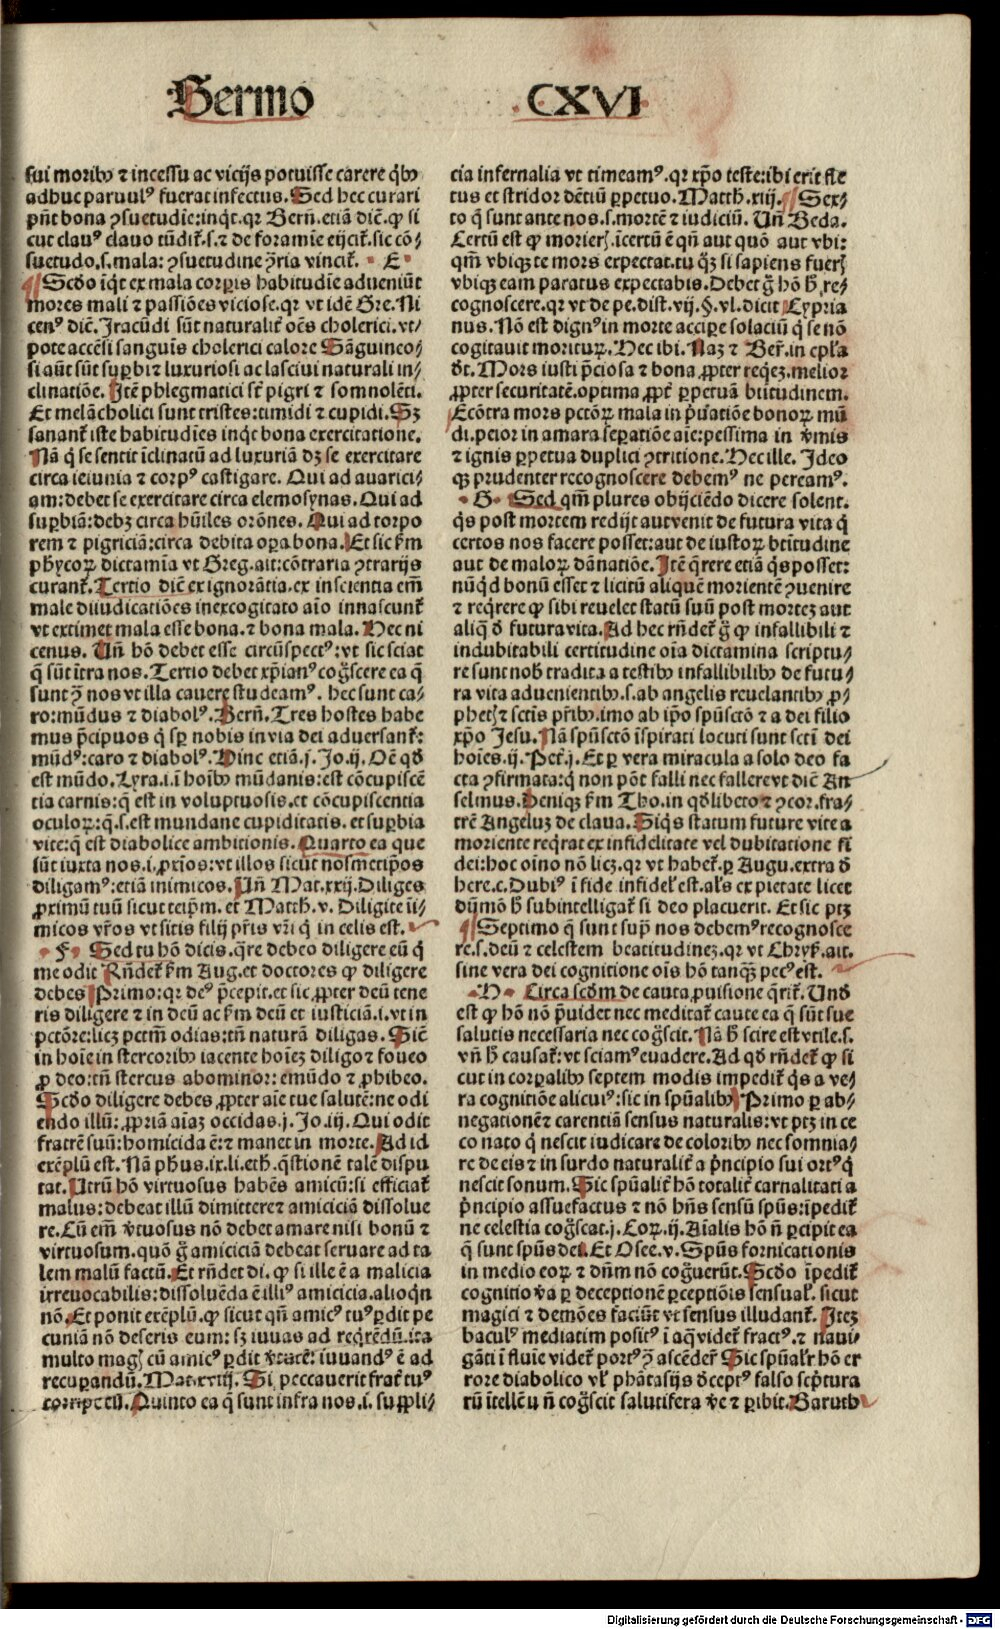 Sermo CXVI
sui moribꝰ ⁊ incessu ac vicijs potuisse carere q̈bꝰ
adhuc paruulꝰ fuerat infectus. Sed hec curari
pn̄t bona ↄsuetudīe: inq̇t. qr Bern̄. etiā dič. ꝙ si
cut clauꝰ clauo tūdit̄. s. ⁊ de foramīe eijcit̄. sic cō/
suetudo. s. mala: ↄsuetudine ↄ̄ria vincit̄. E
Scḋo īq̇t ex mala corꝑis habitudīe adueniūt
mores mali ⁊ passiōes viciose. qr vt idē Gre. Ni
cenꝰ dič. Iracūdi sūt naturalit̄ oēs cholerici. vt/
pote accēsi sanguīs cholerici calore Sāguineo/
si aūt sūt suꝑbi ⁊ luxuriosi ac lasciui naturali in/
clinatiōe. Itē phlegmatici st̄ pigri ⁊ somnolēti.
Et melācholici sunt tristes: timidi ⁊ cupidi. Sꝫ
sanant̄ iste habitudīes inq̇t bona exercitatione.
Nā q̇ se sentit īclinatū ad luxuriā dꝫ se exercitare
circa ieiunia ⁊ corpꝰ castigare. Qui ad auarici/
am: debet se exercitare circa elemosynas. Qui ad
suꝑbiā: debꝫ circa hūiles orōnes. Qui ad torpo
rem ⁊ pigriciā: circa debita oꝑa bona. Et sic ẜm
phycoꝝ dictamīa vt Greg. ait: cōtraria ↄtrarijs
curant̄. Tertio dič ex ignorātia. ex inscientia em̄
male diiudicatiōes inexcogitato aīo innascunt̄
vt extimet mala esse bona. ⁊ bona mala. Hec ni
cenus. Vn̄ hō debet esse circūspectꝰ: vt sic sciat
q̄ sūt ītra nos. Tertio debet xp̄ianꝰ cog̈scere ea q̄
sunt ↄ̄ nos vt illa cauere studeamꝰ. hec sunt ca/
ro: mūdus ⁊ diabolꝰ. Bern̄. Tres hostes habe
mus p̄cipuos q̇ sꝑ nobis in via dei aduersant̄:
mūdꝰ: caro ⁊ diabolꝰ. Hinc etiā. j. Jo. ij. Oē qḋ
est mūdo. Lyra. i. ī hoībꝰ mūdanis: est cōcupiscē
tia carnis: q̄ est in voluptuosis. et cōcupiscentia
oculoꝝ: q̄. s. est mundane cupiditatis. et suꝑbia
vite: q̄ est diabolice ambitionis. Quarto ea que
sūt iuxta nos. i. ꝓxīos: vt illos sicut nosmetip̄os
diligamꝰ: etiā inimicos. Vn̄ Mat. xxij. Diliges
ꝓximū tuū sicut teip̄m. et Matth. v. Diligite īi/
micos vr̄os vt sitis filij pr̄is vr̄i q̇ in celis est.
F Sed tu hō dicis. q̄re debeo diligere eū q̇
me odit Rn̄det̄ ẜm Aug. et doctores ꝙ diligere
debes Primo: qr deꝰ p̄cepit. et sic ꝓpter deū tene
ris diligere ⁊ in deū ac ẜm deū et iusticiā. i. vt in
pctōre: licꝫ pctm̄ odias: tn̄ naturā diligas. Sič
in hoīe in stercoribꝰ iacente hoīeꝫ diligo ⁊ foueo
ꝓ deo: tn̄ stercus abominor: emūdo ⁊ ꝓhibeo.
Scḋo diligere debes, ꝓpter aīe tue salutē: ne odi
endo illū: ꝓpriā aīaꝫ occidas. j. Jo. iij. Qui odit
fratrē suū: homicida ē: ⁊ manet in morte. Ad id
exēplū est. Nā phꝰs. ix. li. eth. q̄stionē talē dispu
tat. Vtrū hō virtuosus habēs amicū: si efficiat̄
malus: debeat illū dimittere ⁊ amiciciā dissolue
re. Cū em̄ v̇tuosus nō debet amare nisi bonū ⁊
virtuosum. quō g̊ amiciciā debeat seruare ad ta
lem malū factū. Et rn̄det di. ꝙ si ille ē a malicia
irreuocabilis: dissoluēda ē illiꝰ amicicia. alioq̇n
nō. Et ponit exēplū. ꝙ sicut qn̄ amicꝰ tuꝰ ꝑdit pe
cuniā nō deseris eum: sꝫ iuuas ad req̇rēdū. ita
multo mag̃ cū amicꝰ ꝑdit v̇tutē: iuuandꝰ ē ad
recuꝑandū. Mat. xviij. Si peccauerit frat̄ tuꝰ
corripe eū. Quinto ea q̄ sunt infra nos. i. suppli/
cia infernalia vt timeamꝰ. qr xp̄o teste: ibi erit fle
tus et stridor dētiū ꝑpetuo. Matth. xiij. Sex/
to q̄ sunt ante nos. s. mortē ⁊ iudiciū. Vn̄ Beda.
Certū est ꝙ morierꝭ. īcertū ē qn̄ aut quō aut vbi:
qm̄ vbiqꝫ te mors expectat. tu q̇ꝫ si sapiens fuerꝭ
vbiqꝫ eam paratus expectabis. Debet g̊ hō h̄, re/
cognoscere. qr vt de pe. dist. vij. §. vl. dicit Cypria
nus. Nō est dignꝰ in morte acciꝑe solaciū q̇ se nō
cogitauit morituꝝ. Hec ibi. Naꝫ ⁊ Ber̄. in epl̄a
ḋt. Mors iusti p̄ciosa ⁊ bona, ꝓpter req̇eꝫ. melior
ꝓpter securitatē. optima ꝓpt̄ ꝑpetuā btītudinem.
Ecōtra mors pctōꝝ mala in ṗuatiōe bonoꝝ mū
di. peior in amara seꝑatiōe aīe: pessima in v̇mis
⁊ ignis ꝑpetua duplici ↄtritione. Hec ille. Ideo
qꝫ prudenter recognoscere debemꝰ ne pereamꝰ.
G Sed qm̄ plures obijciēdo dicere solent.
q̇s post mortem redijt aut venit de futura vita q̇
certos nos facere posset: aut de iustoꝝ btītudine
aut de maloꝝ dānatiōe. Itē q̄rere etiā q̇s posset:
nūq̇d bonū esset ⁊ licitū aliquē morientē ↄuenire
⁊ req̇rere ꝙ sibi reuelet statū suū post morteꝫ aut
aliq̇ ḋ futura vita. Ad hec rn̄det̄ g̊ ꝙ infallibili ⁊
indubitabili certitudine oīa dictamina scriptu/
re sunt nob̄ tradita a testibꝰ infallibilibꝰ de futu/
ra vita aduenientibꝰ. s. ab angelis reuelantibꝰ ꝓ/
phetꝭ ⁊ sctīs pr̄ibꝰ. imo ab ip̄o spūsctō ⁊ a dei filio
xp̄o Jesu. Nā spūsctō īspirati locuti sunt sctī dei
hoīes. ij. Pet̄. j. Et ꝑ vera miracula a solo deo fa
cta ↄfirmata: q̄ non pōt falli nec fallere vt dič An
selmus. Deniqꝫ ẜm Tho. in qḋlibeto ⁊ ↄcor. fra/
trē Angeluꝫ de claua. Siq̇s statum future vite a
moriente req̇rat ex infidelitate vel dubitatione fi
dei: hoc oīno nō licꝫ. qr vt habet̄. ꝑ Augu. extra ḋ
here. c. Dubiꝰ ī fide infidel̄ est. al̄s ex pietate licet
dūmō h̄ subintelligat̄ si deo placuerit. Et sic ptꝫ
Septimo q̄ sunt suꝑ nos debemꝰ recognosce
re. s. deū ⁊ celestem beatitudineꝫ. qr vt Chryß. ait.
sine vera dei cognitione oīs hō tanqꝫ pecꝰ est.
H Circa scḋm de cauta ꝓuisione q̄rit̄. Vnḋ
est ꝙ hō nō p̄uidet nec meditat̄ caute ea q̄ sūt sue
salutis necessaria nec cog̈scit. Nā h̄ scire est vtile. s.
vn̄ h̄ causat̄: vt sciamꝰ euadere. Ad qḋ rn̄det̄ ꝙ si
cut in corꝑalibꝰ septem modis impedit̄ q̇s a ve/
ra cognitiōe alicuiꝰ: sic in spūalibꝰ Primo ꝑ ab/
negationē ⁊ carentiā sensus naturalis: vt ptꝫ in ce
co nato q̇ nescit iudicare de coloribꝰ nec somnia/
re de eis ⁊ in surdo naturalit̄ a ṗncipio sui ortꝰ q̇
nescit sonum. Sic spūalit̄ hō totalit̄ carnalitati a
ṗncipio assuefactus ⁊ nō hn̄s sensū spūs: īpedit̄
ne celestia cog̈scat. j. Coꝝ. ij. Aīalis hō n̄ ꝑcipit ea
q̄ sunt spūs dei. Et Osee. v. Spūs fornicationis
in medio eoꝝ ⁊ dn̄m nō cog̈uerūt. Scḋo īpedit̄
cognitio v̇a ꝑ deceptionē ꝑceptiōis sensual̄. sicut
magici ⁊ demōes faciūt vt sensus illudant̄. Iteꝫ
baculꝰ mediatim positꝰ ī aq̄ videt̄ fractꝰ. ⁊ naui/
gāti ī fluīe videt̄ portꝰ ↄ̄ ascēdeř Sic spūal̄r hō er
rore diabolico vl̓ phātasijs ḋceptꝰ falso scp̄tura
rū ītellectu n̄ cog̈scit salutifera v̇e ⁊ ꝑibit. Baruth
Digitalisierung gefördert durch die Deutsche Forschungsgemeinschaft - DFG